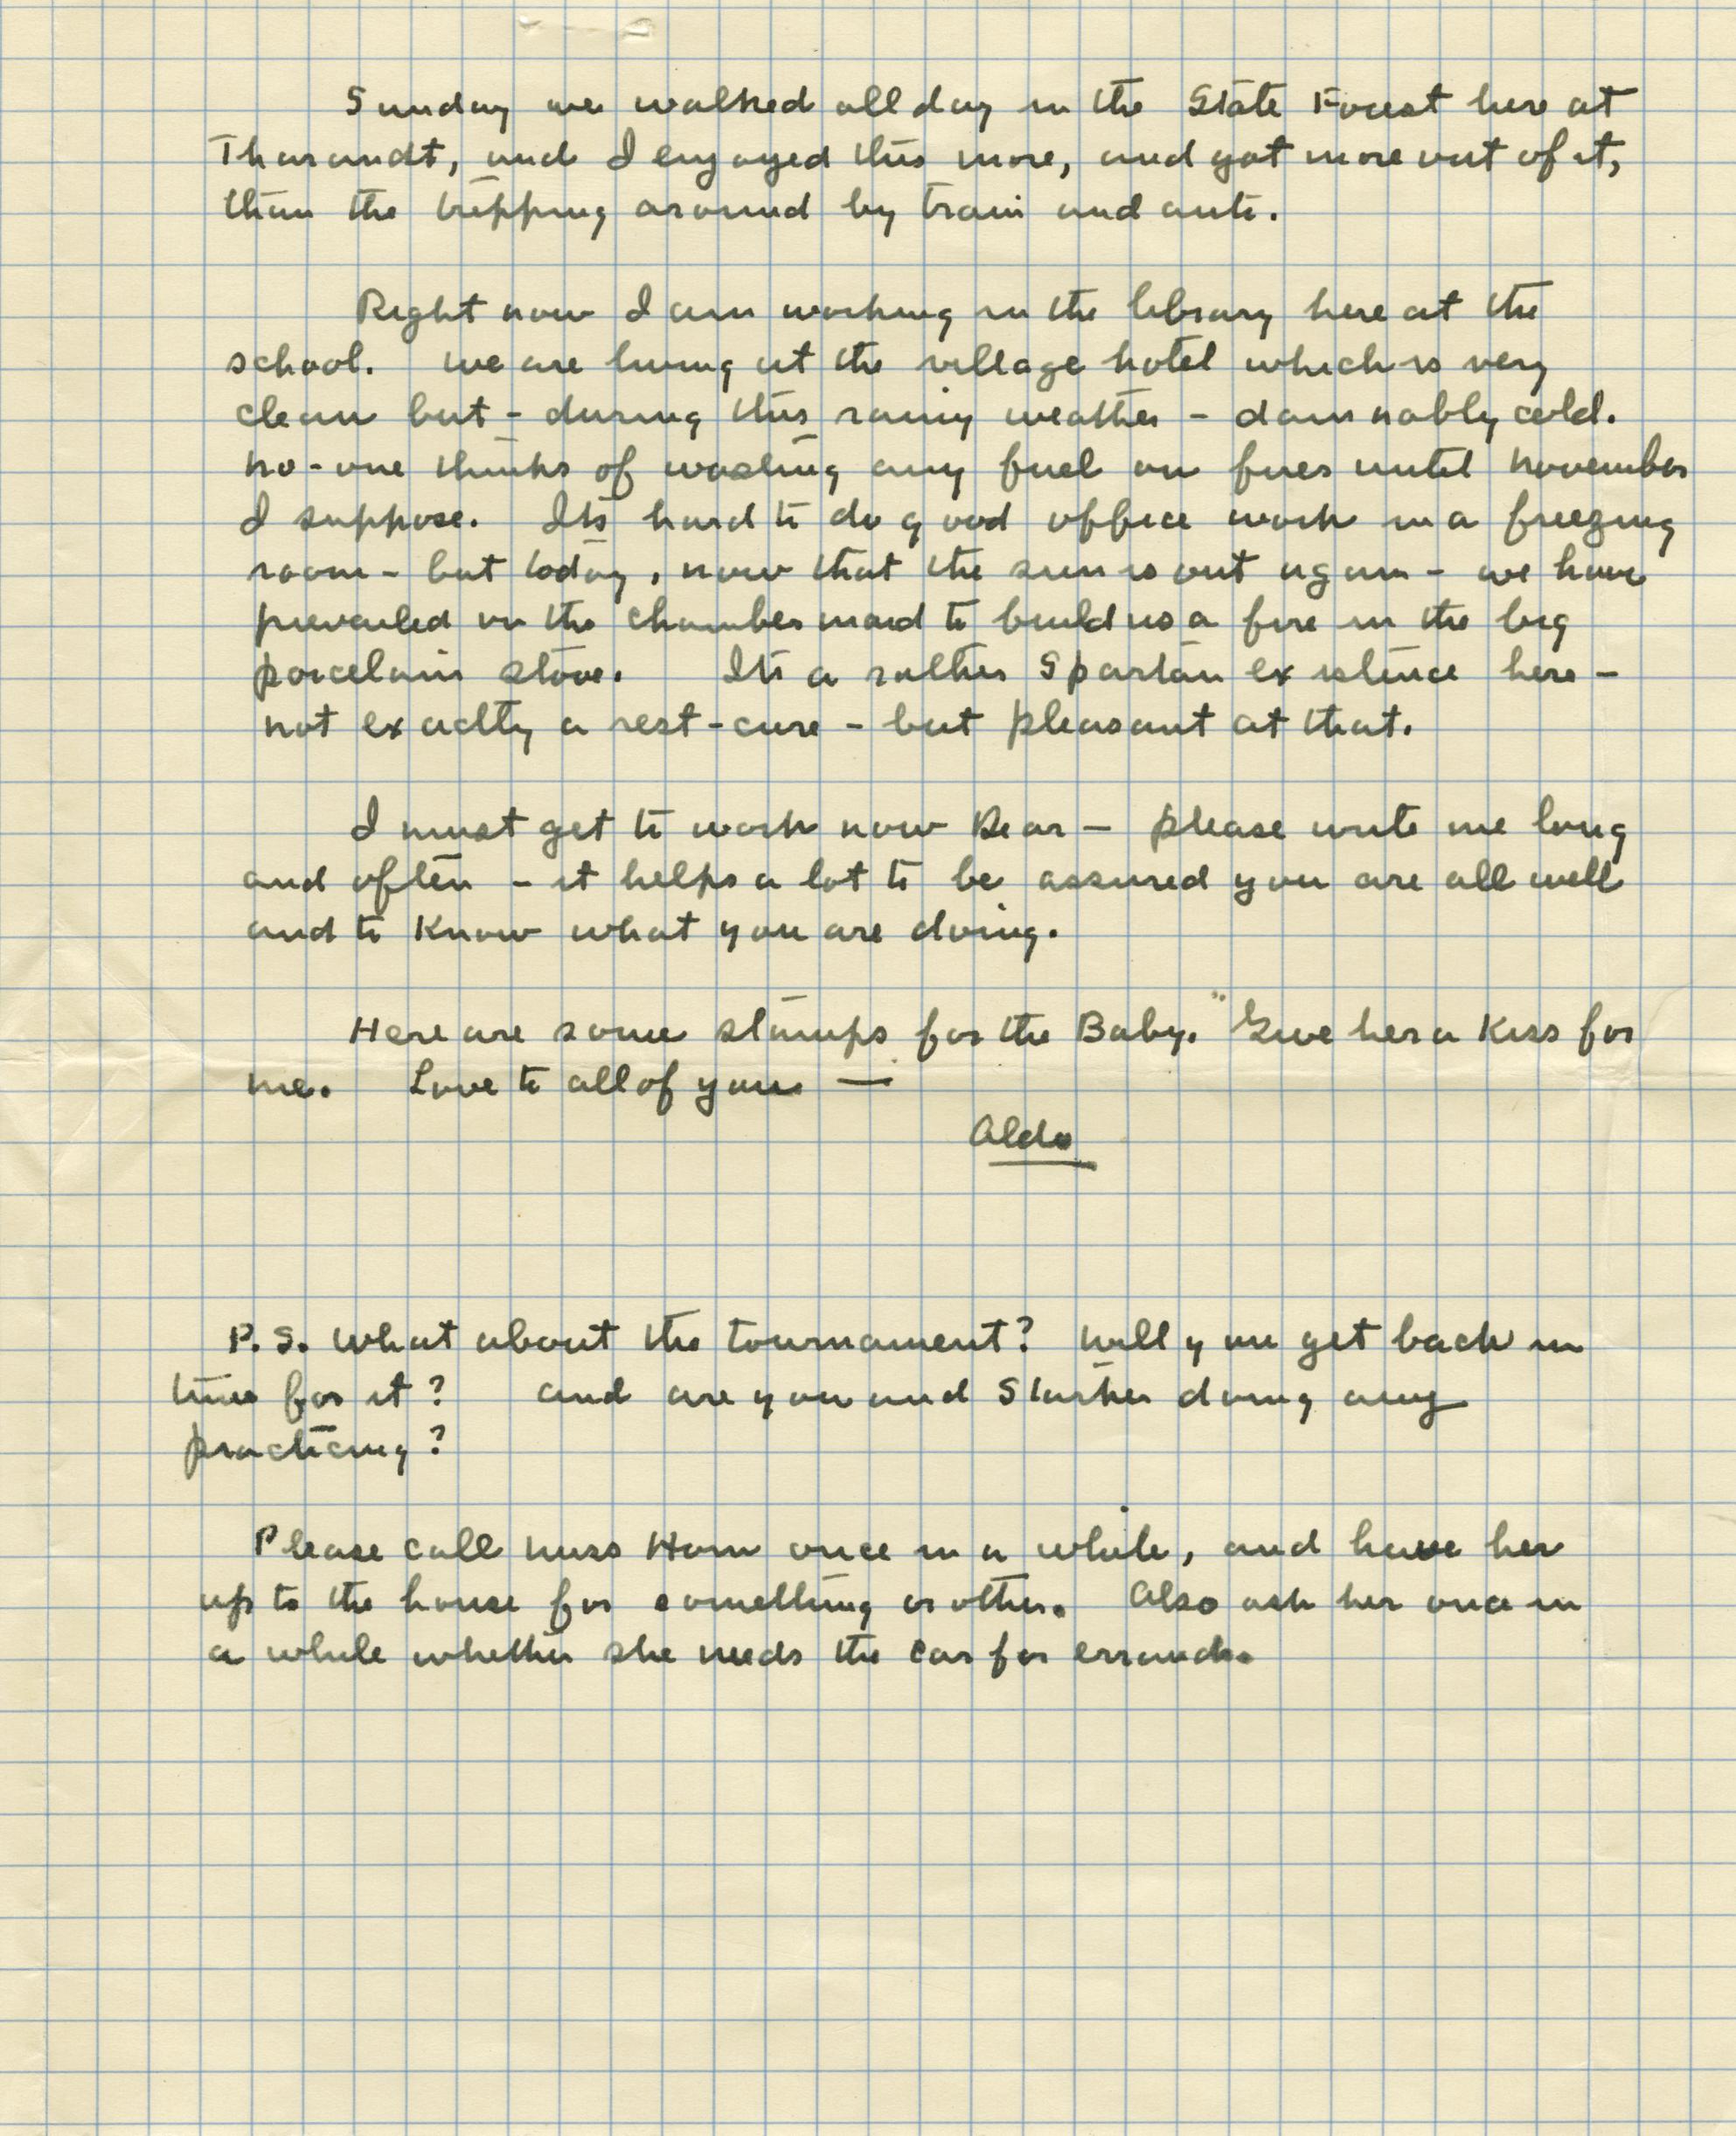 Sunday we walked all day in the State Forest here at
Tharandt, and I enjoyed this more, and got more out of it,
than the tripping around by train and auto.
Right now I am working in the library here at the
school. We are living at the village hotel which is very
clean but - during this rainy weather - damnably cold.
No-one thinks of wasting any fuel on fires until November
I suppose. Its hard to do good office work in a freezing
room - but today, now that the sun is out again - we have
prevailed on the chambermaid to build us a fire in the big
porcelain stove. Its a rather Spartan existence here -
not exactly a rest-cure - but pleasant at that.
I must get to work now Dear - please write me long
and often - it helps a lot to be assured you are all well
and to know what you are doing.
Here are some stamps for the Baby." Give her a kiss for
me. Love to all of you —
Aldo
P.S. What about the tournament? Will you get back in
time for it? And are you and Starker doing any
practicing?
Please call Miss Horn once in a while, and have her
up to the house for something or other. Also ask her once in
a while whether she needs the car for errands.